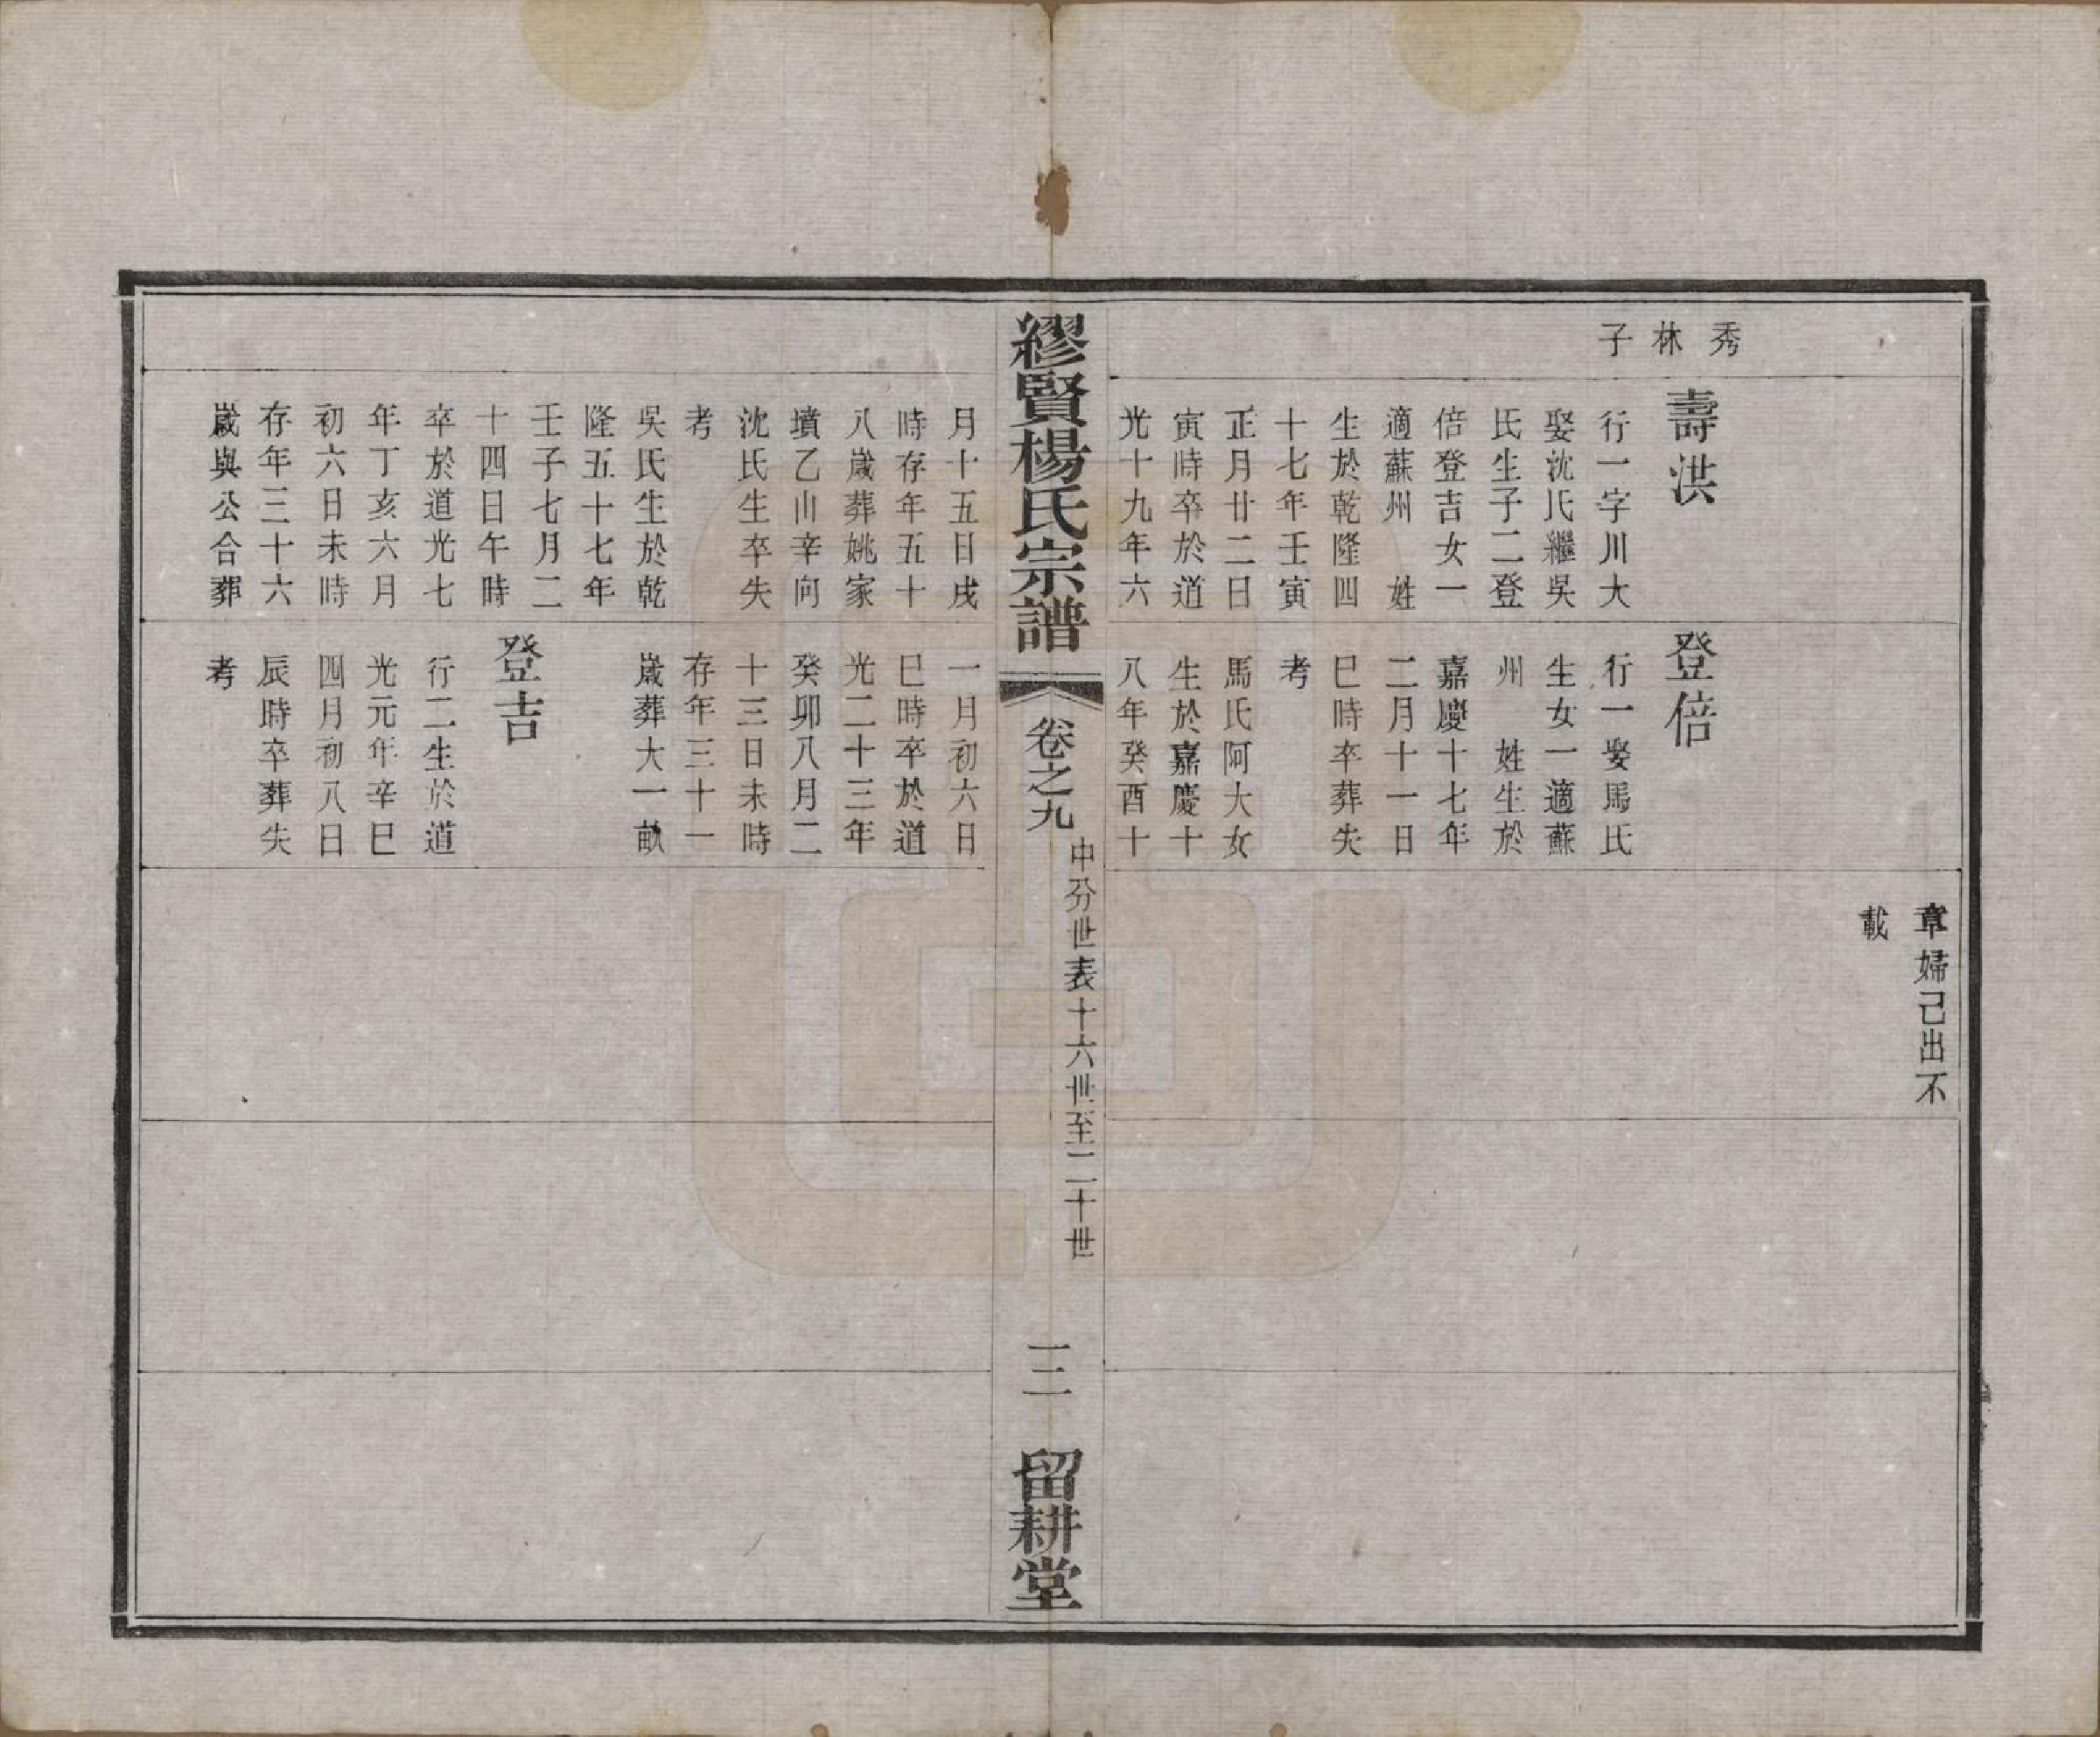 章婦己出不
載
秀
林
子
壽洪
行一字川大
娶沈氏繼吳
氏生子二登
倍登吉女一
適蘇州　姓
生於乾隆四
十七年壬寅
正月廿二日
寅時卒於道
光十九年六
登倍
行一娶馬氏
生女一適蘇
州　姓生於
嘉慶十七年
二月十一日
巳時卒葬失
考
馬氏阿大女
生於嘉慶十
八年癸酉十
繆賢楊氏宗譜
卷之九
中分世表十六世至二十世
三
留耕堂
月十五日戌
時存年五十
八歲葬姚家
墳乙山辛向
沈氏生卒失
考
吳氏生於乾
隆五十七年
壬子七月二
十四日午時
卒於道光七
年丁亥六月
初六日未時
存年三十六
歲與公合葬
一月初六日
巳時卒於道
光二十三年
癸卯八月二
十三日未時
存年三十一
歲葬大一畝
登吉
行二生於道
光元年辛巳
四月初八日
辰時卒葬失
考